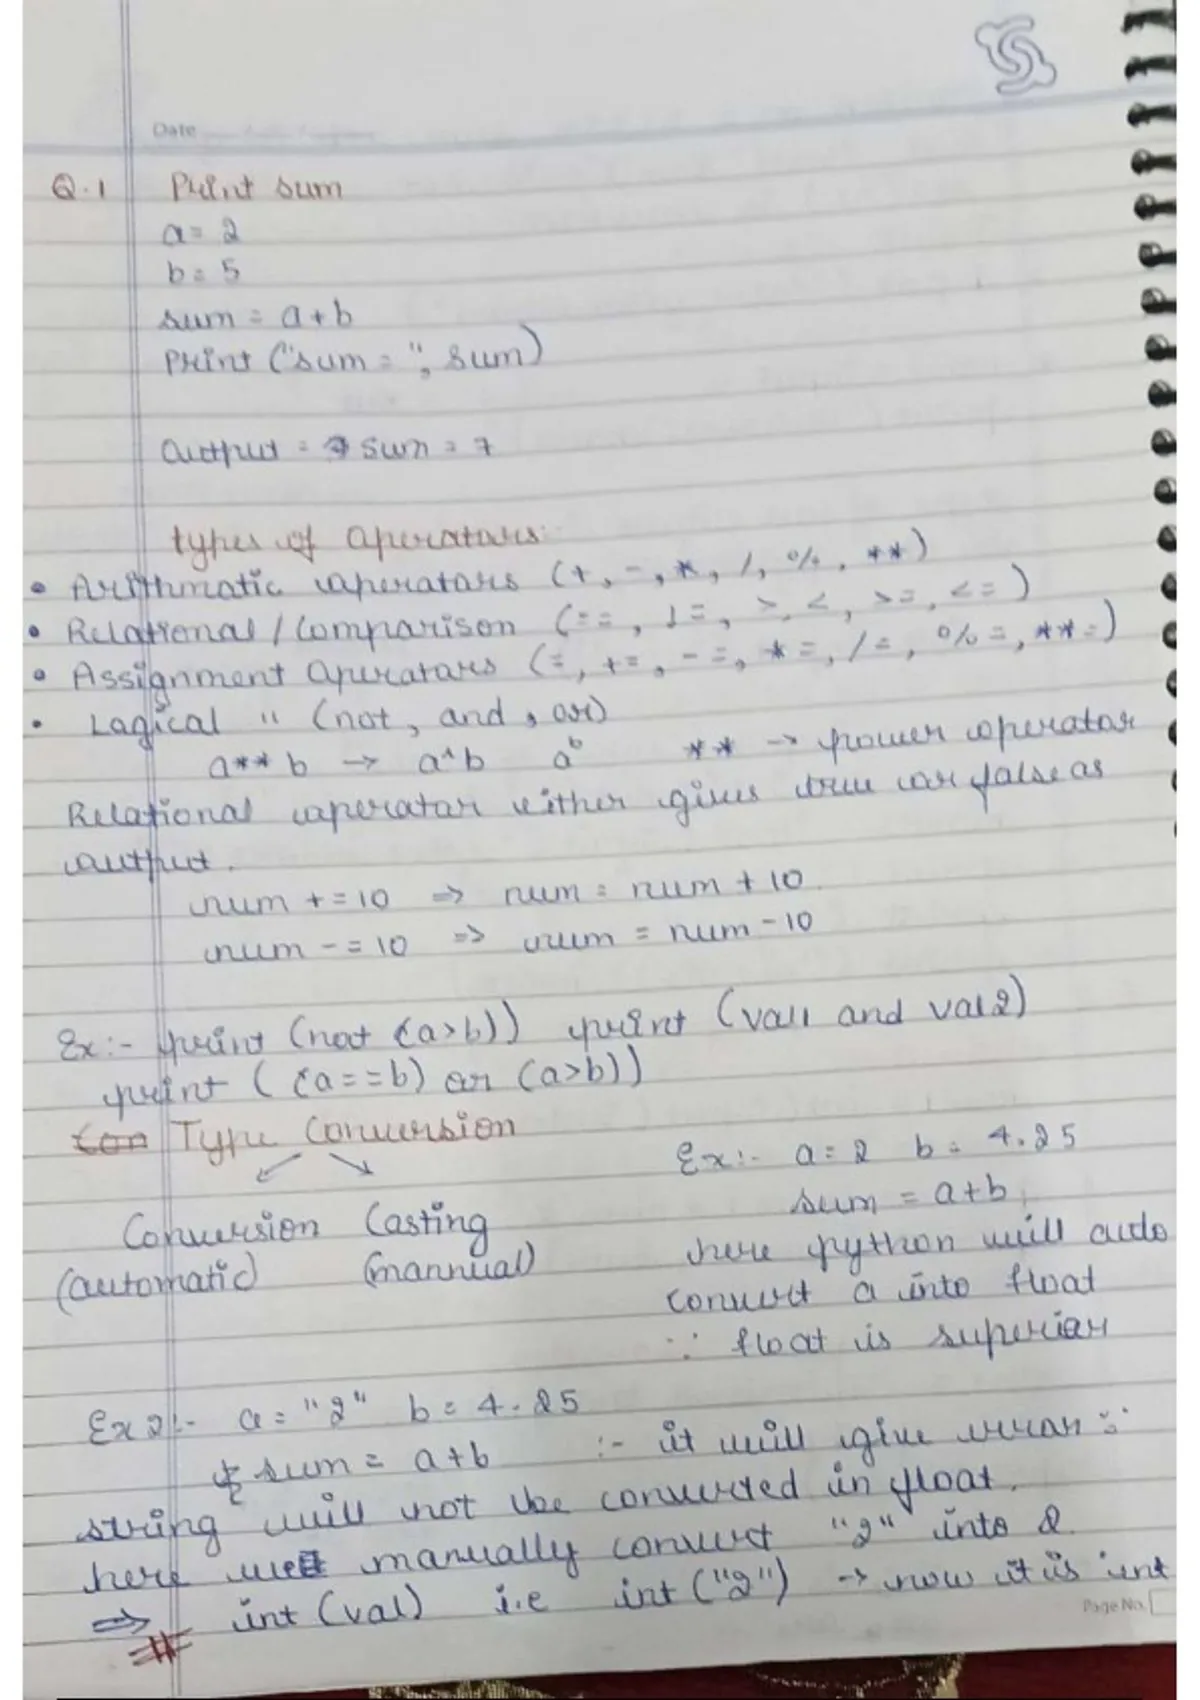 Date
Q.1 Print sum
a = 2
b = 5
sum = a + b
Print ("sum = ", sum)
Output = sum = 7
types of operators:
• Arithmatic operators (+, -, *, /, %, **)
• Relational / Comparison (==, !=, >, <, >=, <=)
• Assignment operators (=, +=, -=, *=, /=, %=, **=)
• Logical " (not, and, or)
a**b → a^b aᵇ ** → power operator
Relational operator either gives true or false as
output.
num += 10 ⇒ num = num + 10
num -= 10 ⇒ num = num - 10
Ex:- print (not (a>b)) print (val1 and val2)
print ( (a==b) or (a>b))
Type Conversion
Conversion Casting
(automatic) (mannual)
Ex:- a = 2 b = 4.25
sum = a+b
here python will auto
convert a into float
∵ float is superior
Ex 2:- a = "2" b = 4.25
sum = a+b :- it will give error ∵
string will not be converted in float.
here we manually convert "2" into 2
⇒ int (val) i.e int ("2") → now it is int
Page No.